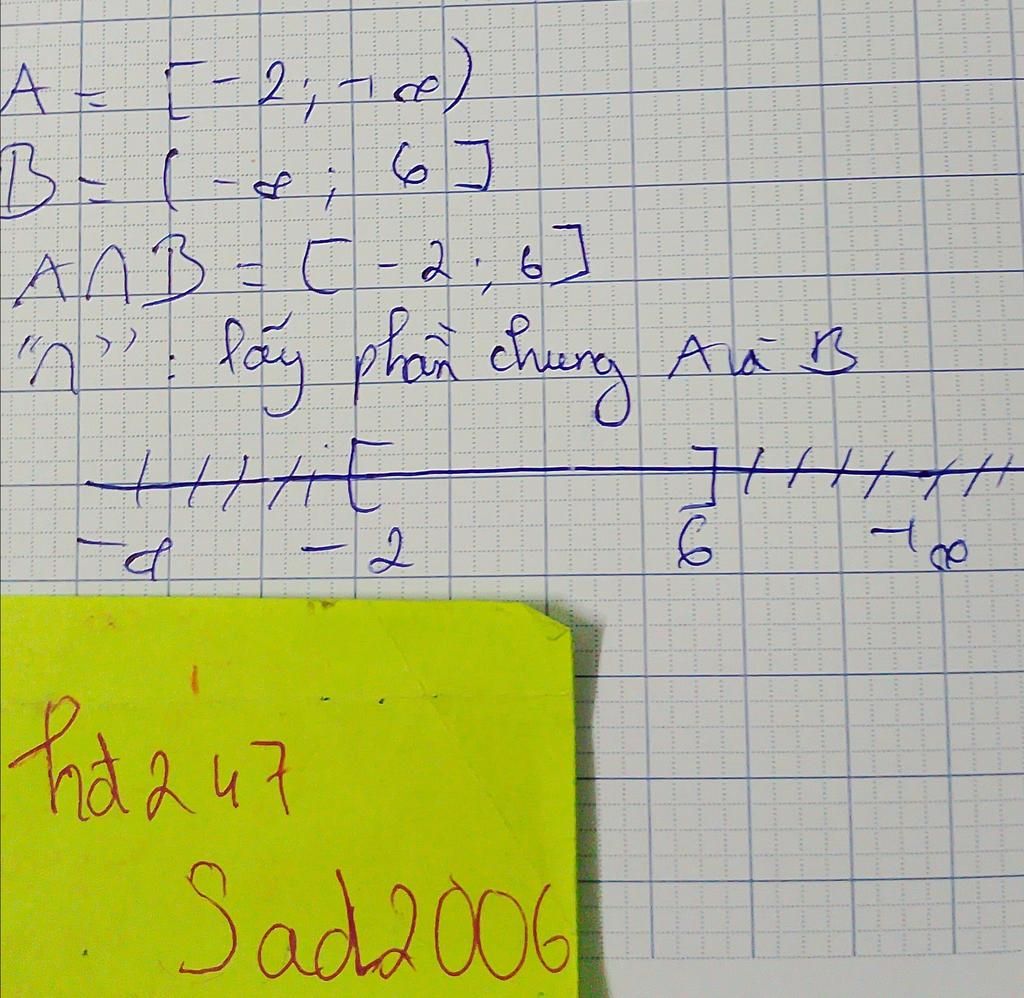 A = [-2; +∞)
B = (-∞; 6]
A∩B = [-2; 6]
"∩": lấy phần chung A và B
-∞ -2 6 +∞
hđ247
Sad2006